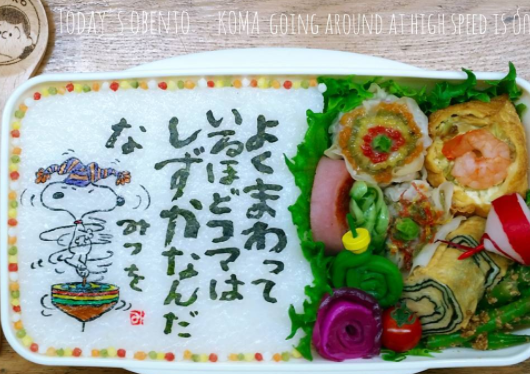 TODAY'S OBENTO KOMA GOING AROUND AT HIGH SPEED IS
よくまわって
いるほどコマは
しずかなんだ
な
みつを